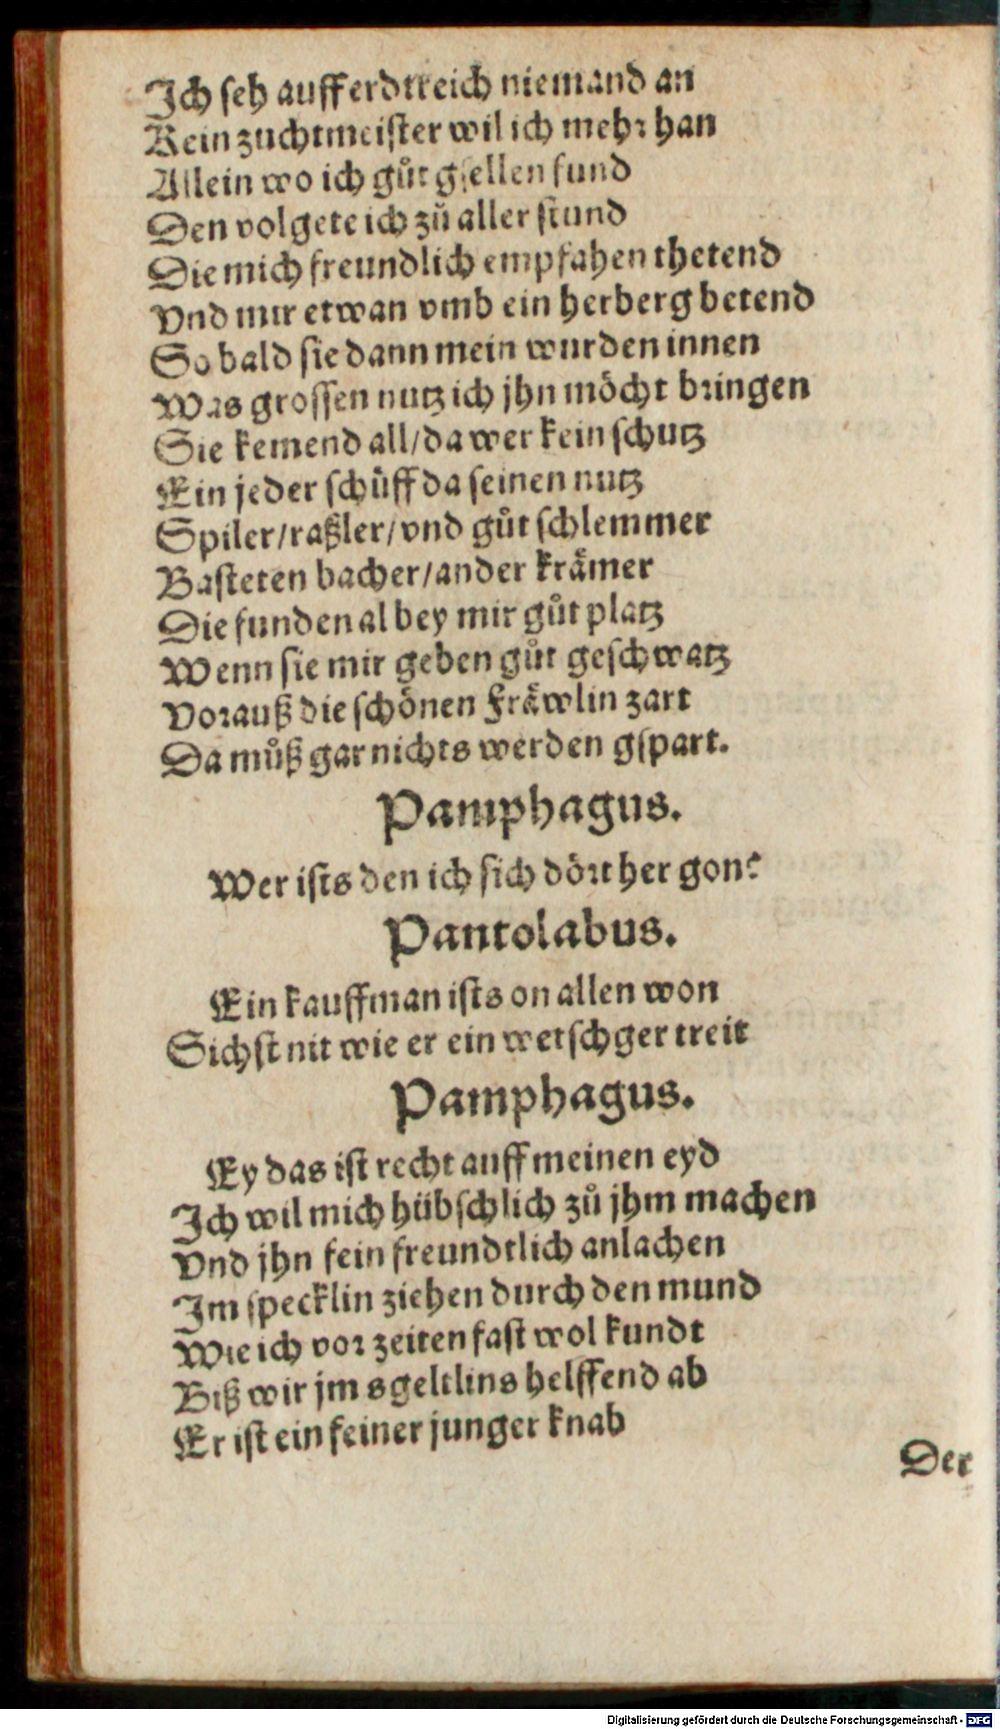 Ich seh auff erdtreich niemand an
Kein zuchtmeister wil ich mehr han
Allein wo ich gůt gsellen fund
Den volgete ich zů aller stund
Die mich freundlich empfahen thetend
Vnd mir etwan vmb ein herberg betend
So bald sie dann mein wurden innen
Was grossen nutz ich jhn möcht bringen
Sie kemend all/ da wer kein schutz
Ein jeder schůff da seinen nutz
Spiler/ raßler/ vnd gůt schlemmer
Basteten bacher/ ander krämer
Die funden al bey mir gůt platz
Wenn sie mir geben gůt geschwatz
Vorauß die schönen Fräwlin zart
Da můß gar nichts werden gspart.
Pamphagus.
Wer ists den ich sich dört her gon?
Pantolabus.
Ein kauffman ists on allen won
Sichst nit wie er ein wetschger treit
Pamphagus.
Ey das ist recht auff meinen eyd
Ich wil mich hübschlich zů jhm machen
Vnd jhn fein freundtlich anlachen
Im specklin ziehen durch den mund
Wie ich vor zeiten fast wol kundt
Biß wir jm s geltlins helffend ab
Er ist ein feiner junger knab
Der
Digitalisierung gefördert durch die Deutsche Forschungsgemeinschaft - DFG